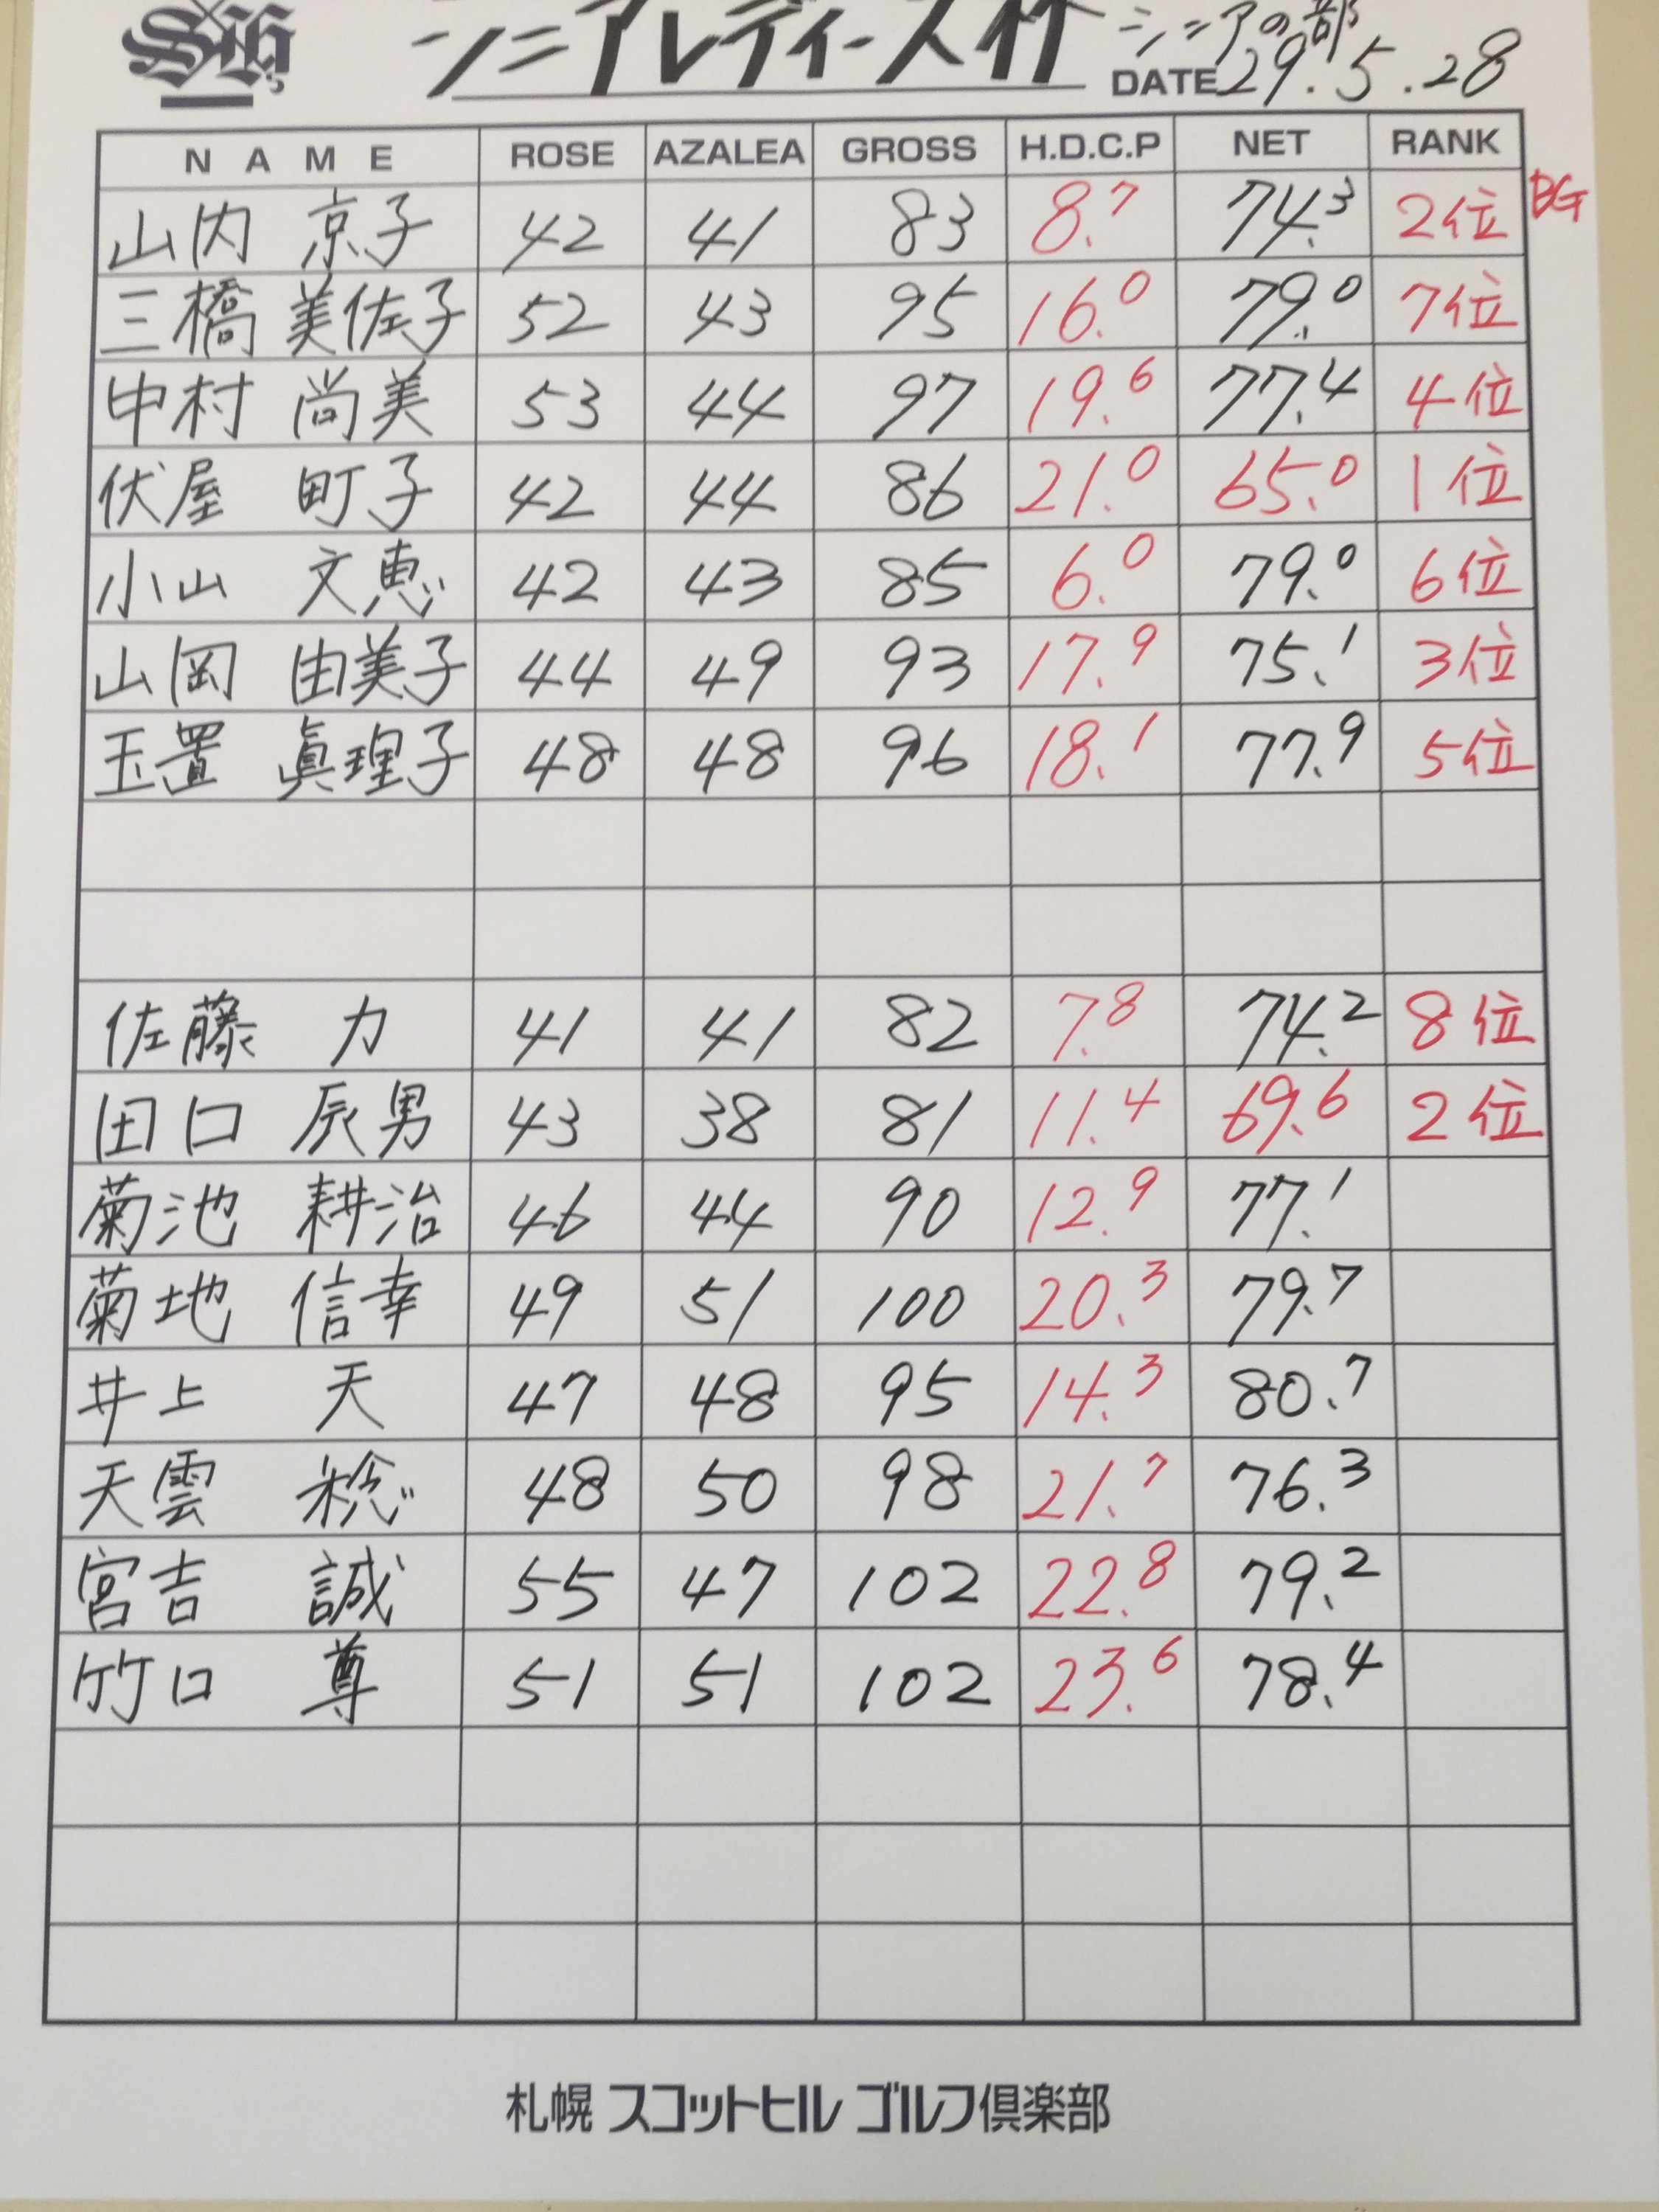 SH
シニアレディース杯 シニアの部
DATE 29.5.28
NAME ROSE AZALEA GROSS H.D.C.P NET RANK
山内 京子 42 41 83 8.7 74.3 2位 BG
三橋 美佐子 52 43 95 16.0 79.0 7位
中村 尚美 53 44 97 19.6 77.4 4位
伏屋 町子 42 44 86 21.0 65.0 1位
小山 文恵 42 43 85 6.0 79.0 6位
山岡 由美子 44 49 93 17.9 75.1 3位
玉置 眞理子 48 48 96 18.1 77.9 5位
佐藤 力 41 41 82 7.8 74.2 8位
田口 辰男 43 38 81 11.4 69.6 2位
菊池 耕治 46 44 90 12.9 77.1
菊地 信幸 49 51 100 20.3 79.7
井上 天 47 48 95 14.3 80.7
天雲 48 50 98 21.7 76.3
宮吉 誠 55 47 102 22.8 79.2
竹口 尊 51 51 102 23.6 78.4
札幌 スコットヒル ゴルフ倶楽部